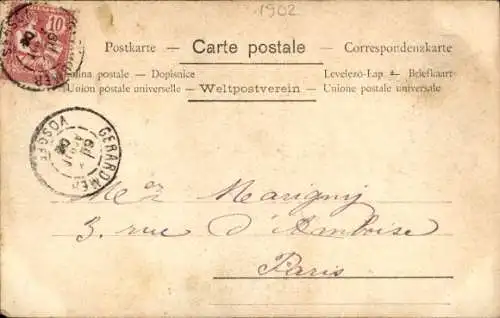 1902
10
Postkarte — Carte postale — Correspondenzkarte
postale — Dopisnice Levelező-Lap — Briefkaart
Union postale universelle — Weltpostverein — Unione postale universale
GERARDMER
VOSGES
Marigny
3, rue d'Amboise
Paris